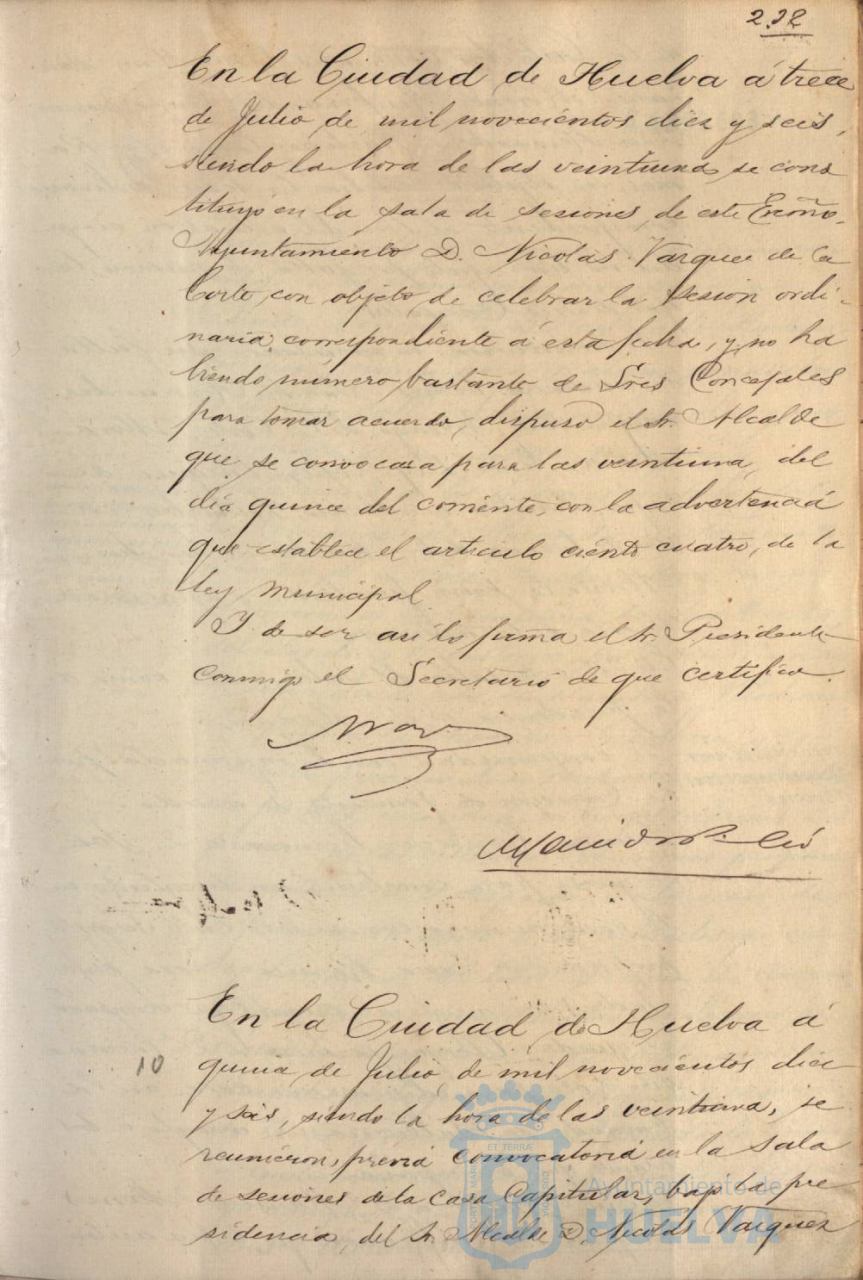 2.32
En la Ciudad de Huelva á trece
de Julio de mil novecientos diez y seis,
siendo la hora de las veintiuna, se cons
tituyó en la sala de sesiones, de este Excmo.
Ayuntamiento D. Nicolás Vazquez de la
Corte, con objeto, de celebrar la sesion ordi-
naria, correspondiente á esta fecha, y no ha
biendo número bastante de Sres Concejales
para tomar acuerdo, dispuso el Sr. Alcalde
que se convocara para las veintiuna, del
dia quince del corriente, con la advertencia
que establece el articulo ciento cuatro, de la
ley municipal.
Y de ser asi lo firma el Sr. Presidente
conmigo el Secretario de que certifico.
En la Ciudad de Huelva á
10
quince de Julio, de mil novecientos diez
y seis, siendo la hora de las veintiuna, se
reunieron, previa convocatoria en la sala
de sesiones de la casa Capitular, bajo la pre
sidencia, del Sr. Alcalde D. Nicolás Vazquez
Ayuntamiento de
HUELVA